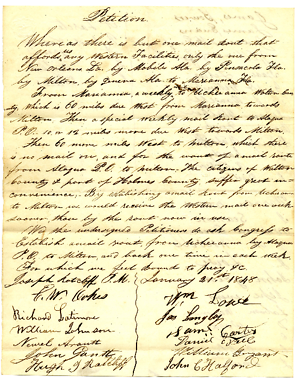 Petition
Whereas there is but one mail rout that
affords us any Western Facilities only the one from
New Orleans La. by Mobile Ala. by Pensacola Fla.
by Milton, by Geneva Ala. to Marianna Fla.
From Marianna, a weekly to Ucheeanna Walton Coun-
ty, which is 60 miles due West from Marianna towards
Milton Then a special weekly mail Rout to Stagus
P.O. 10, or 12 miles more due West towards Milton,
Then 60 more miles West to Milton, which there
is no mail on, and for the want of a mail route
from Stagus P.O. to Milton, The citizens of Walton
County & ports of Holmes County suffer great in-
convenience. By establishing a mail rout from Ucheean-
na to Milton we would receive the Western mail one week
sooner than by the rout now in use.
We the undersigned Petitioners do ask Congress to
Establish a mail rout, from Ucheeanna by Stagus
P.O. to Milton and back one time in each week
For which we feel bound to pray &c
January 21st 1848
Joseph Ratcliff P.M.
Richard Latimore
William Johnson
Hugh Ratcliff
Wm
Saml Carter
Daniel
William
John C